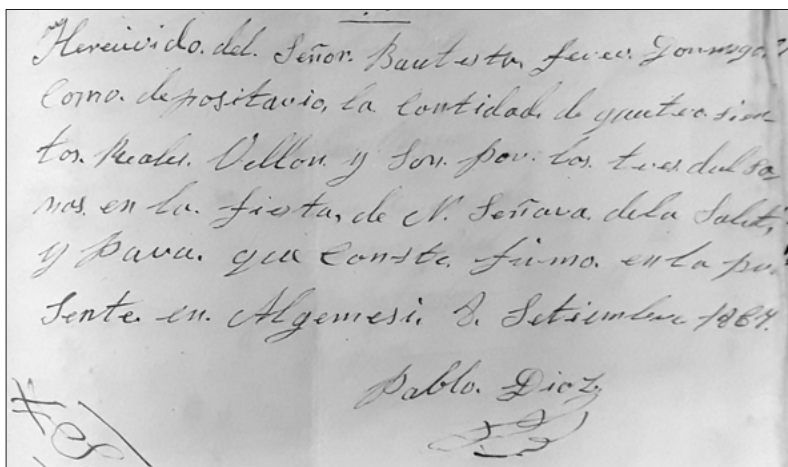 He recivido. del. Señor. Bautista, ferer. Domingo.
Como. depositario, la Contidad, de quatro. sien-
tos. Reales. Vellon. y Son. por. los. tres. dulsa
nas. en la. fiesta, de N. Señora. dela Salut,
y para. que Conste. firmo. en la pre
Sente. en. Algemesi, 8. Setiembre 1864.
Pablo. Dioz